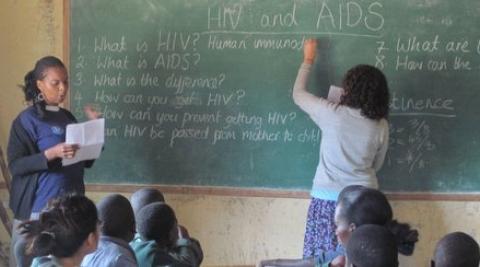 HIV and AIDS
1. What is HIV? Human immuno
2. What is AIDS?
3. What is the difference?
4. How can you get HIV?
How can you prevent getting HIV?
an HIV be passed from mother to chil
7 What are t
8. How can the
tinence